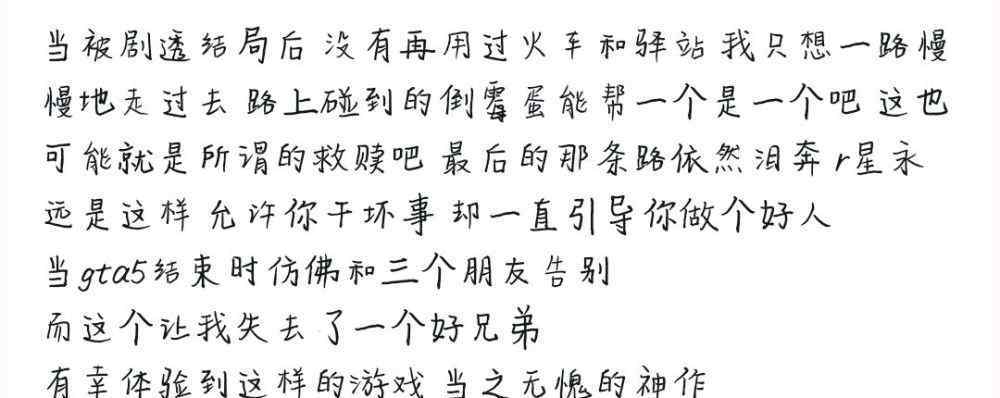 当被剧透结局后 没有再用过火车和驿站 我只想一路慢
慢地走过去 路上碰到的倒霉蛋能帮一个是一个吧 这也
可能就是所谓的救赎吧 最后的那条路依然泪奔 r星永
远是这样 允许你干坏事 却一直引导你做个好人
当gta5结束时仿佛和三个朋友告别
而这个让我失去了一个好兄弟
有幸体验到这样的游戏 当之无愧的神作